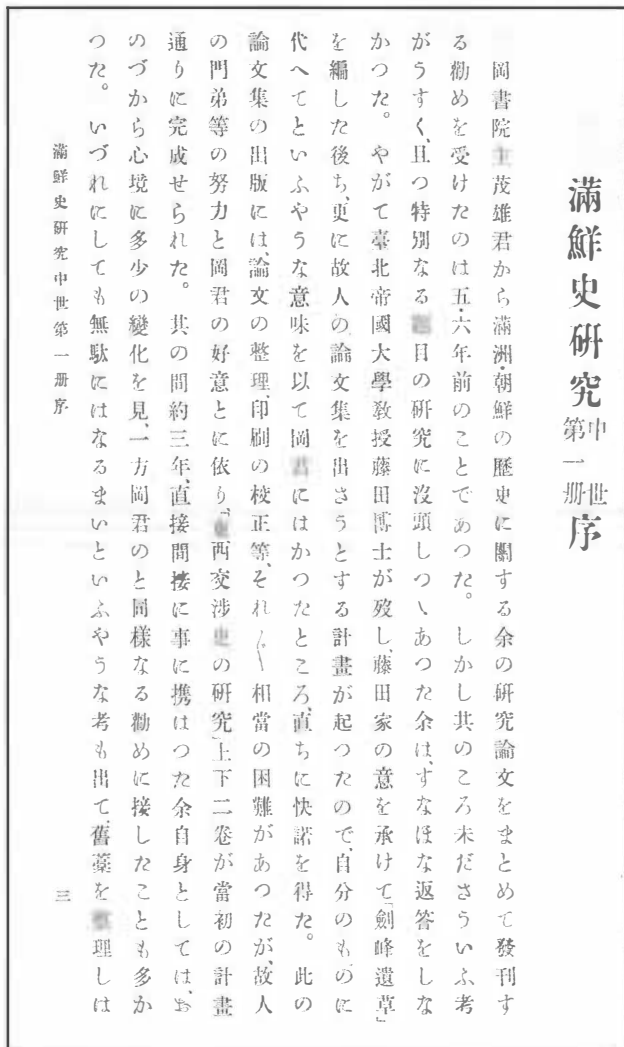 滿鮮史研究 中世第一册 序
岡書院茂雄君から滿洲・朝鮮の歷史に關する余の硏究論文をまとめて發刊す
る勸めを受けたのは五・六年前のことであつた。しかし其のころ未ださういふ考
がうすく、且つ特別なる目の硏究に沒頭しつゝあつた余は、すなほな返答をしな
かつた。やがて臺北帝國大學敎授藤田博士が歿し、藤田家の意を承けて「劍峰遺草」
を編した後ち、更に故人の論文集を出さうとする計畫が起つたので、自分のものに
代へてといふやうな意味を以て岡にはかつたところ、直ちに快諾を得た。此の
論文集の出版には、論文の整理、印刷の校正等、それ〲相當の困難があつたが、故人
の門弟等の努力と岡君の好意とに依り「西交涉の硏究」上下二卷が當初の計畫
通りに完成せられた。其の間約三年、直接間接に事に携はつた余自身としては、お
のづから心境に多少の變化を見、一方岡君のと同樣なる勸めに接したことも多か
つた。いづれにしても無駄にはなるまいといふやうな考も出て、舊藁を理しは
滿鮮史硏究中世第一册序
三